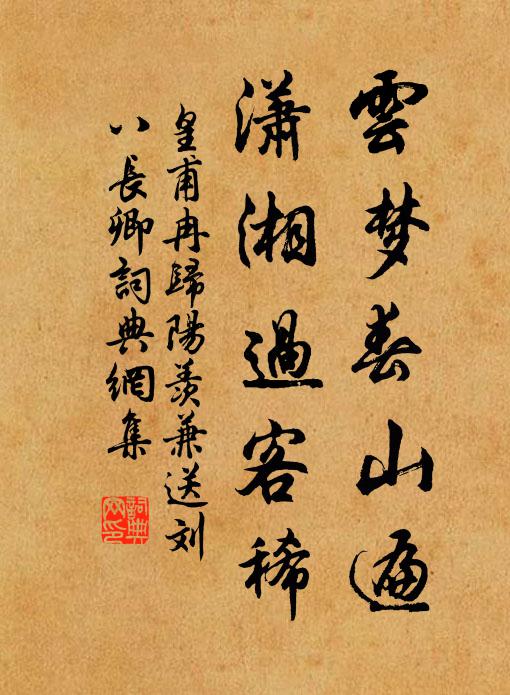 雲梦春山遍
潇湘過客稀
皇甫冉歸陽羨兼送刘
八長卿詞典網集
詞典
网印